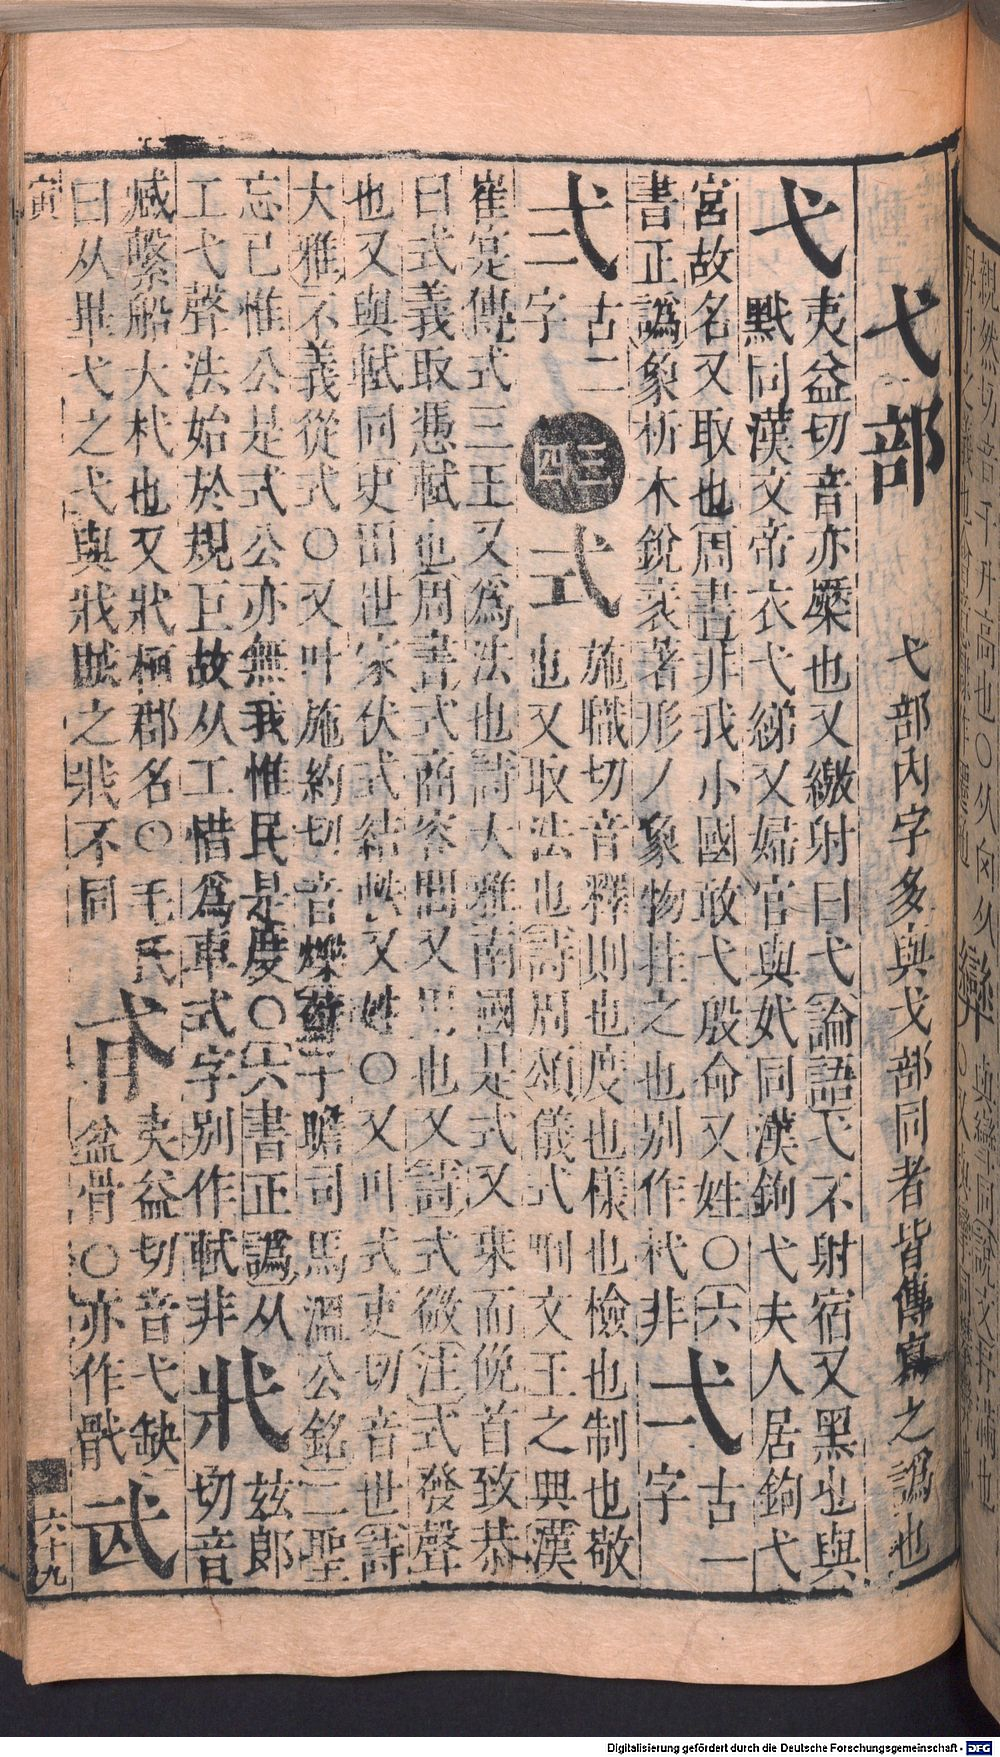 弋部 弋部內字多與戈部同者皆傳寫之譌也
弋 夷益切音亦橜也又繳射曰弋論語弋不射宿又黑也與
默同漢文帝衣弋綈又婦官與妷同漢鉤弋夫人居鉤弋
宮故名又取也周書非我小國敢弋殷命又姓○六
書正譌象析木銳衺著形丿象物挂之也别作杙非
弌 古一
字
弍 古二
字
三四
式 施職切音釋則也度也樣也檢也制也敬
也又取法也詩周頌儀式刑文王之典漢
崔寔傳式三王又爲法也詩大雅南國是式又乘而俛首致恭
曰式義取憑軾也周書式商容閭又用也又詩式微注式發聲
也又與軾同史田世家伏式結軼又姓○又叶式吏切音世詩
大雅不義從式○又叶施約切音爍蘇子瞻司馬溫公銘二聖
忘己惟公是式公亦無我惟民是度○六書正譌从
工弋聲法始於規巨故从工惜爲車式字别作軾非
戕 玆郎
切音
臧繫船大杙也又牂柯郡名○毛氏
曰从爿弋之弋與戕賊之戕不同
夷益切音弋缺
盆骨○亦作䯆
寅
六十九
親然切音千升高也
Digitalisierung gefördert durch die Deutsche Forschungsgemeinschaft - DFG